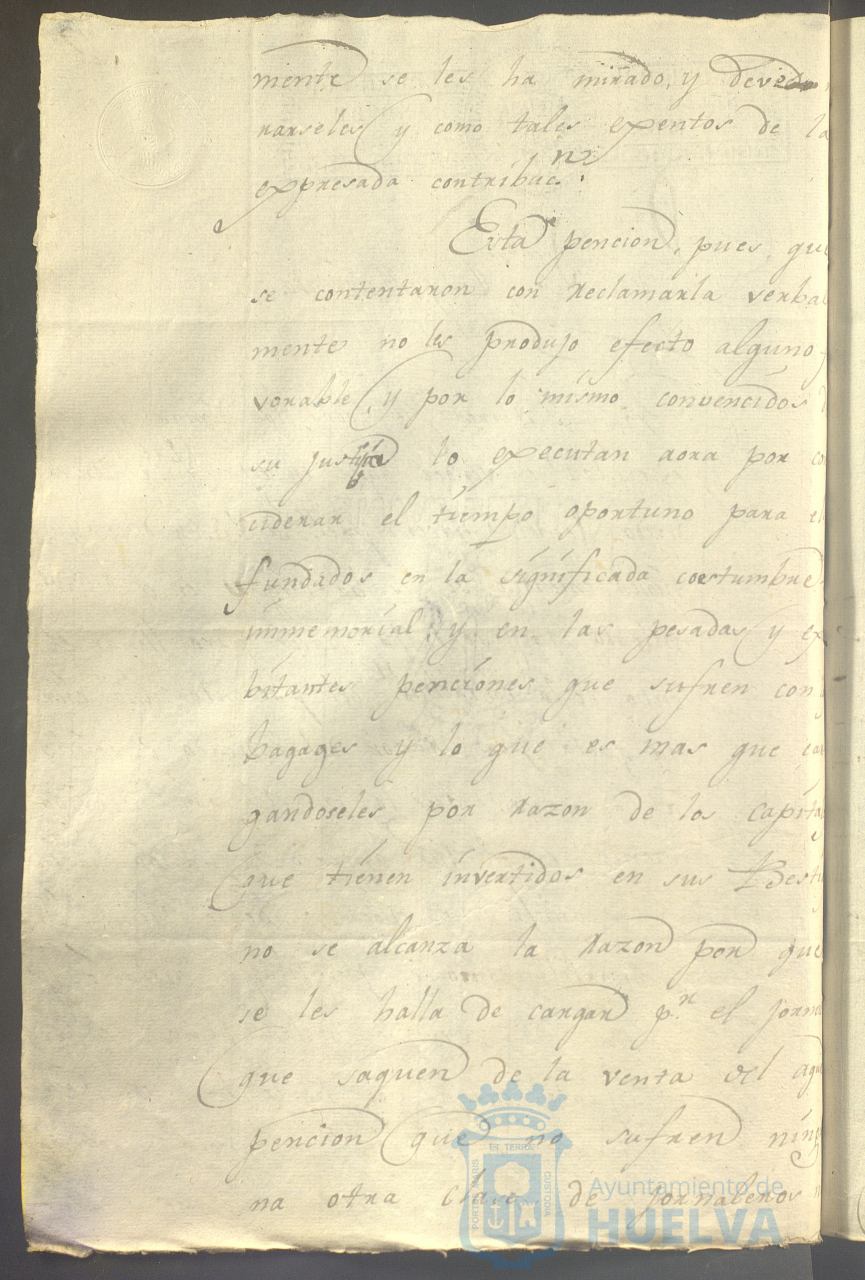 mente se les ha mirado, y deve
rarseles y como tales exentos de la
expresada contribuc.n
Esta pencion, pues que
se contentaron con reclamarla verbal
mente no les produjo efecto alguno
vorable, y por lo mismo convencidos
su justicia lo executan aora por co
ciderar el tiempo oportuno para el
fundados en la significada costumbre
immemorial, y en las pesadas y ex
bitantes penciones que sufren con
bagages y lo que es mas que car
gandoseles por razon de los capita
que tienen invertidos en sus Besti
no se alcanza la razon por que
se les halla de cargar p.r el jorna
que saquen de la venta del agua
pencion que no sufren ning
na otra clase de jornaleros
PORTUS MARIS
ET TERRAE
CUSTODIA
Ayuntamiento de
HUELVA